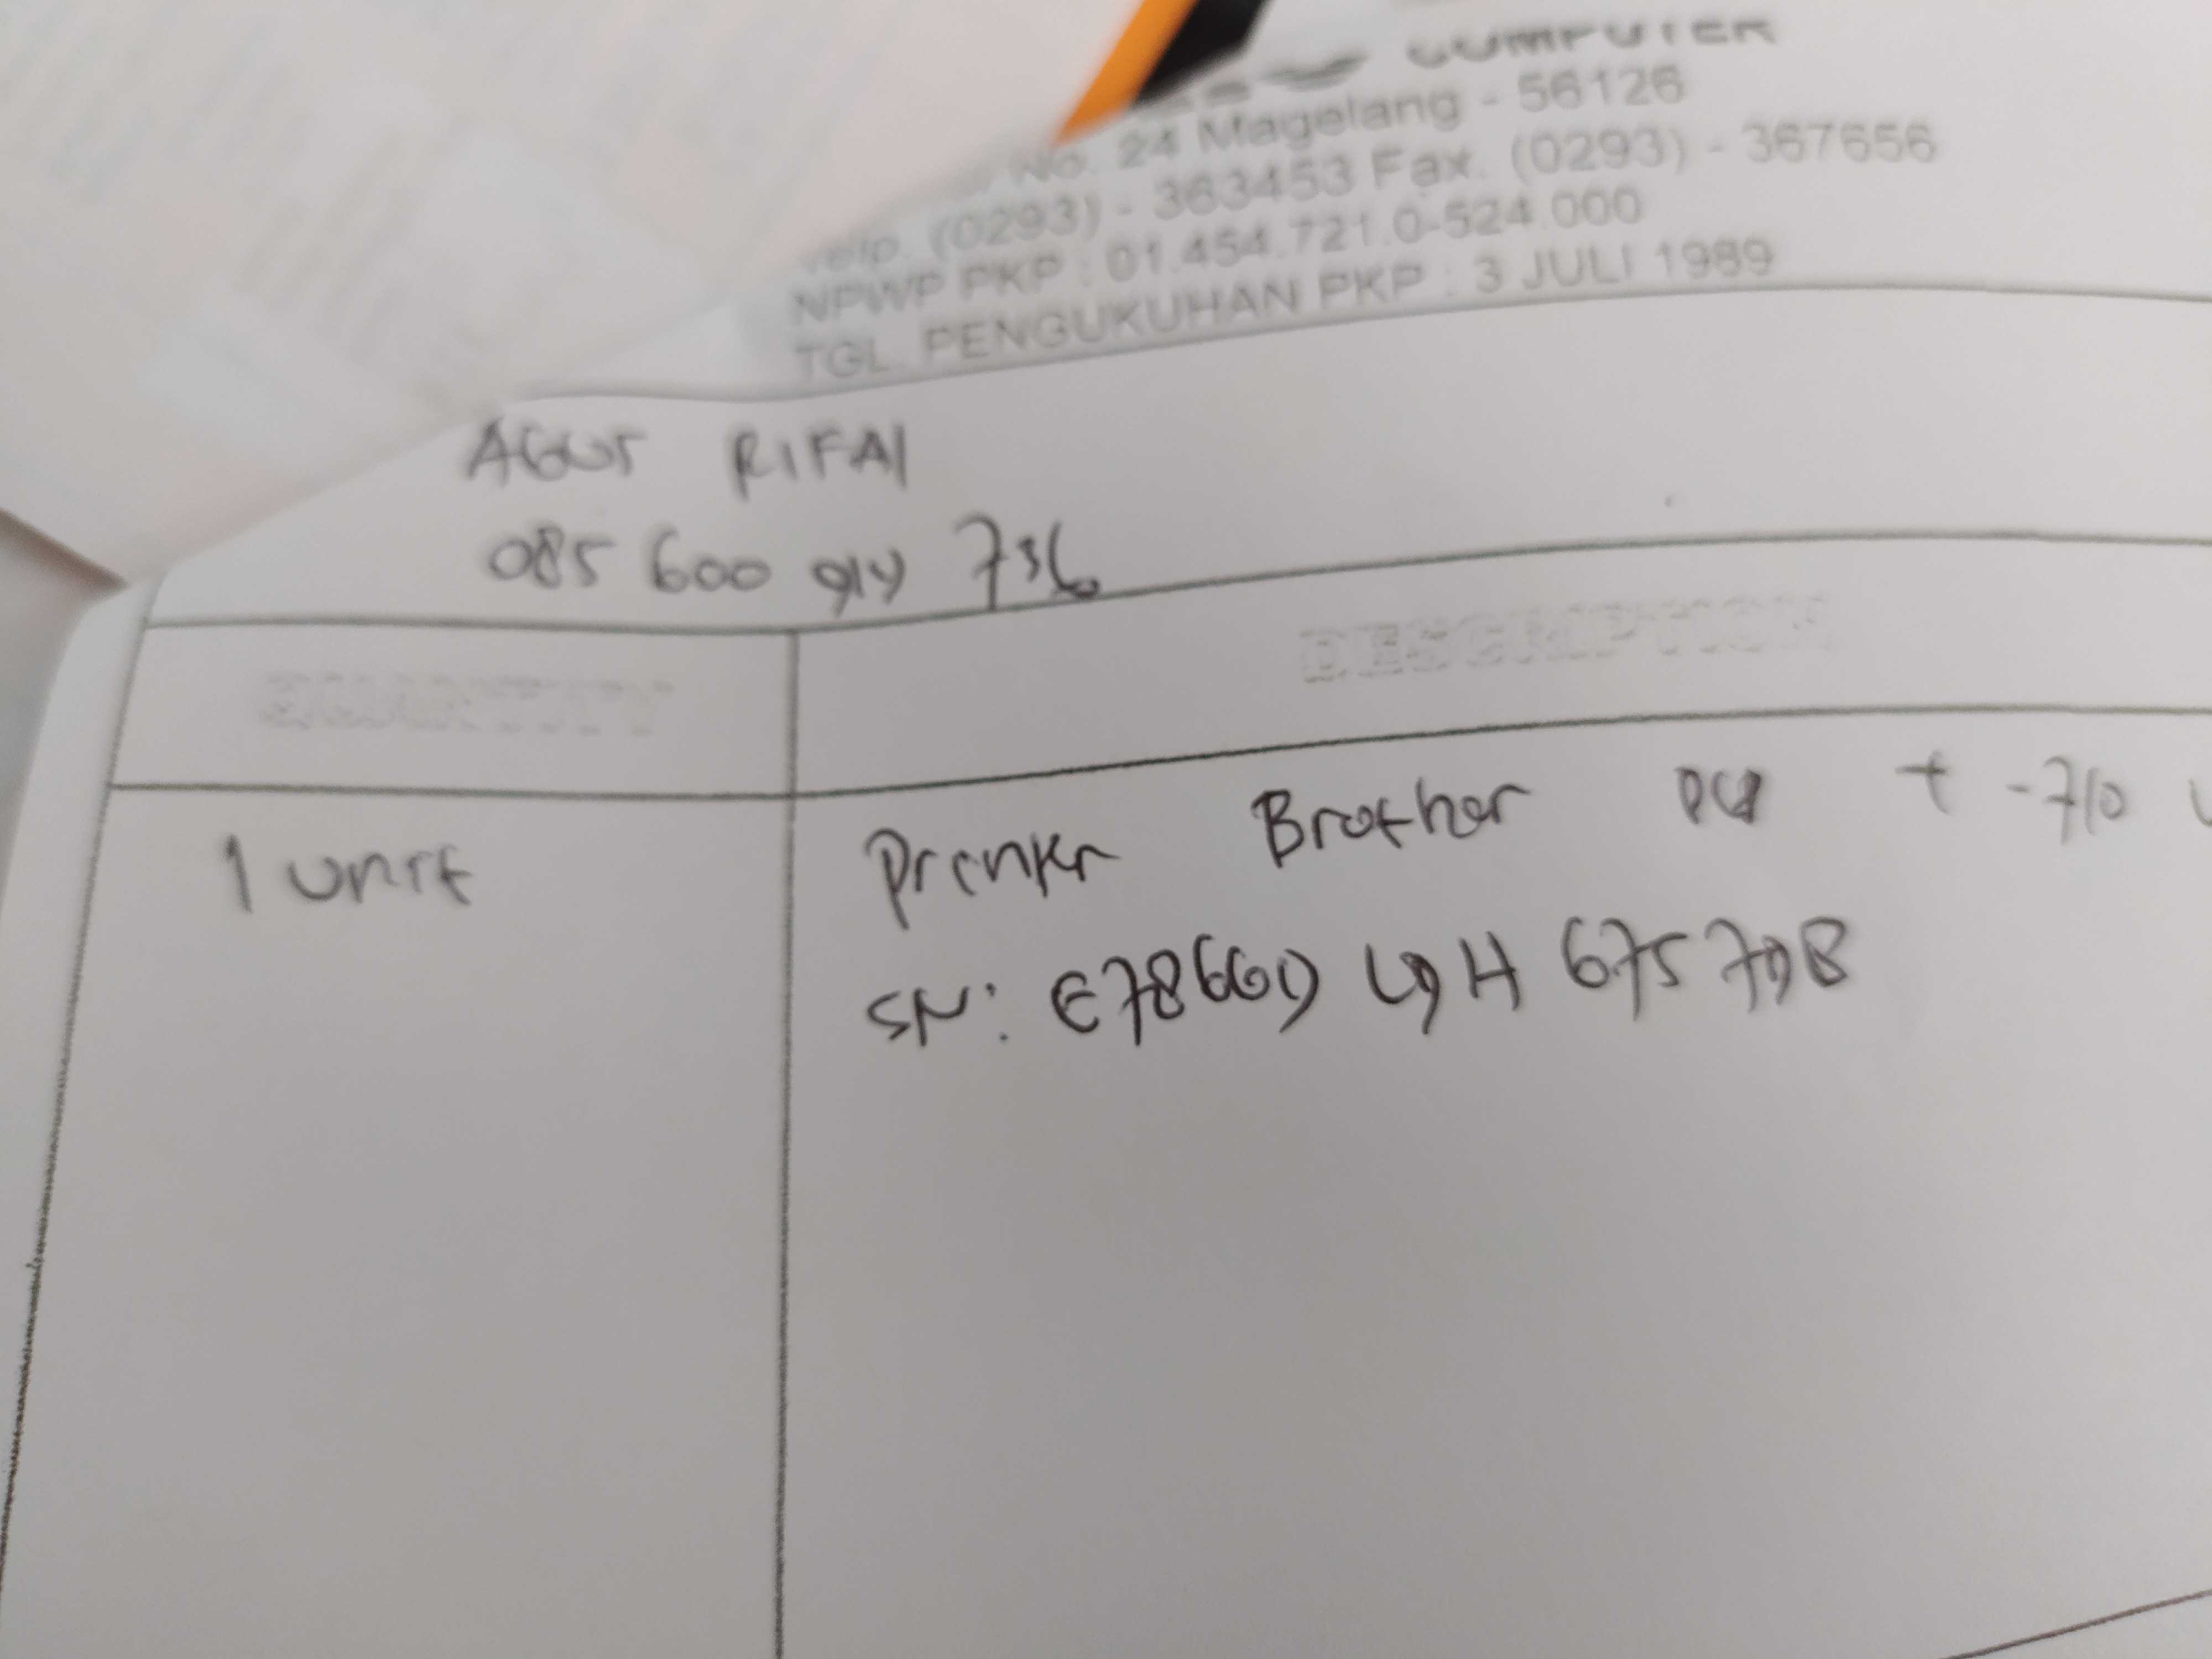 COMPUTER
No. 24 Magelang - 56126
Telp. (0293) - 363453 Fax. (0293) - 367656
NPWP PKP : 01.454.721.0-524.000
TGL. PENGUKUHAN PKP : 3 JULI 1989
AGUS RIFAI
085 600 914 736
QUANTITY DESCRIPTION
1 unit Printer Brother DCP T -710
SN: E78660 L9H 675798